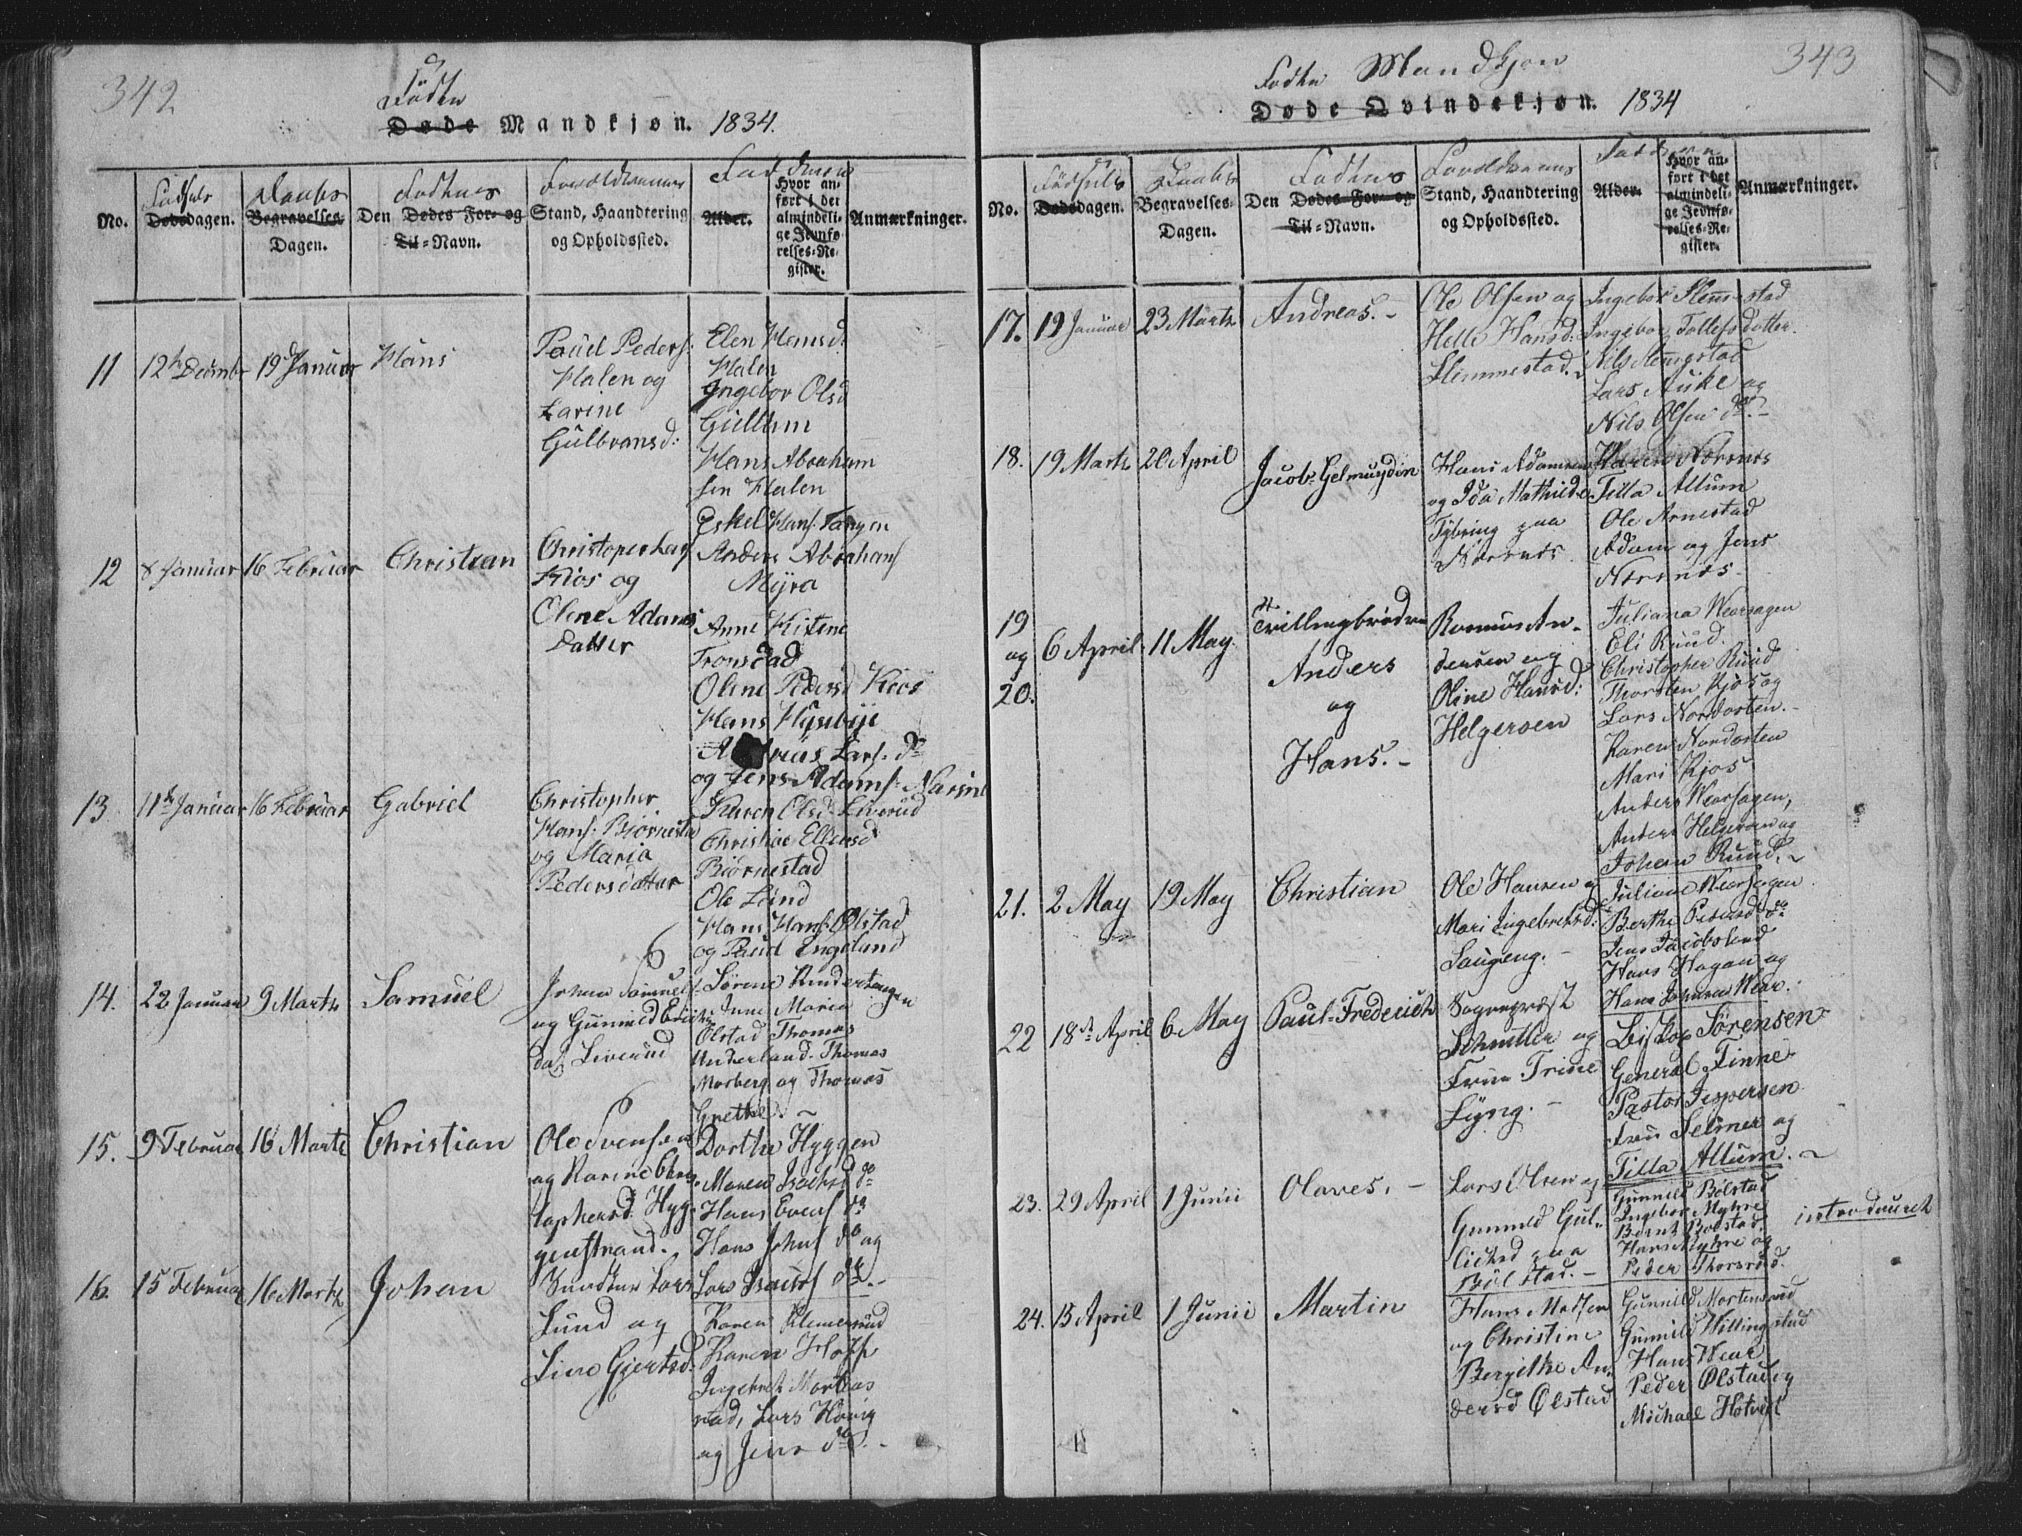 342
Födte
Døde Mandkjøn. 1834.
No.
Fødsels
Dødsdagen.
Daabs
Begravelses
Dagen.
Fødtes
Den Dødes For- og
Til-Navn.
Forældrenes
Stand, Haandtering
og Opholdssted.
Fadderne
Alder.
Hvor an-
ført i det
almindeli-
ge Jevnfø-
relses-Re-
gister.
Anmærkninger.
11 12 Decmbr 19 Januar Hans
Poül Peders:
Halen og
Karine
Gulbransd:
Elen Hansd:
Halen
Ingebor Olsd
Güllum
Hans Abraham
sen Halen
Eskel Hans: Tangen
12 8 Januar 16 Februar Christian
Christopher Lars
Kios og
Olene Adams
Datter
Anders Abrahams
Myra
Anne
Tronstad
Olene Pedersd Kios
Hans Hysebye
Lars: do
og Jens Adams: Narsne
13 11te Januar 16 Februar Gabriel
Christopher
Hans: Biørnesta
og Maria
Pedersdatter
Karen Olsd Liverud
Christine Ellensd
Biørnestad
Ole Lünd
Hans Hans: Ølstad
og Paül Engelund
14. 22 Januar 9 Martz Samüel
Johan Samuels
og Gunnild Erichs
das Liverüd
Sørene Kindertangen
Anne Maria
Ølstad Thomas
Underland. Thomas
Morberg og Thomas
Grette. ~
15. 9 Februar 16 Martz Christian
Ole Svensen
og Karine Chri
tophersd. Hyg-
genstrand.
Dorthe Hyggen
Maren Isachsd do
Hans Evens do
Hans Johns do og
Lars Isachs do. -
16. 15 Februar 16 Martz Johan
Lars
Lund og
Line Gjertsd.
Karen Klemetsrud
Karen Hoff
Ingebret Mortens
rud, Lars Høvig
og Jens do. -
343
Fødte Mandkjøn
Døde Qvindekjøn. 1834
No.
Fødsels
Dødsdagen.
Daabs
Begravelses-
Dagen.
Fødtes
Den Dødes For- og
Til-Navn.
Forældrenes
Stand, Haandtering
og Opholdssted.
Fadderne
Alder.
Hvor an-
ført i det
almindeli-
ge Jevnfø-
relses-Re-
gister.
Anmærkninger.
17. 19 Januar 23 Martz Andreas. -
Ole Olsen og
Helle Hansd:
Slemmestad. -
Ingebor Slemestad
Ingebor Tollefsdotter.
Nils Slemestad
Lars Auke og
Nils Olsen do. -
18. 19 Martz 20 April Jacob Gelmuyden
Hans Adamsen
og Ida Mathilde
Tybring paa
Nærsnes.
Maren Nærsnes
Tilla Allum
Ole Arnestad
Adam og Jens
Nærsnes.
19
og
20. 6 April 11 May.
Tvillingbrødre
Anders
og
Hans. -
Rasmus An-
dersen og
Oline Hansd:
Helgersen
Juliana Wearsagen
Eli Ruud.
Christopher Ruud
Thorsten Kjos og
Lars Nordosten. -
Karen Nordosten
Mari Kjos
Anders Wearsagen,
Anders Helgersen og
Johan Ruud. ~
21. 2 May 19 May Christian
Ole Hansen og
Mari Ingebretsd:
Laugeng. -
Juliane Wearsagen
Berthe Pedersd do
Jens Jacobslund
Hans Hagan og
Hans Johnsen Wear.
22 18de April 6 May Paul-Frederich
Sogneprest
Schmiller og
Frue Trine
Lyng. -
Biskop Sørensen
General Finne
Pastor Jespersen
Fru Selmer og
Tilla Allum. ~
23. 29 April 1 Junii Olaves. -
Lars Olsen og
Gunnild Gul-
lichsd paa
Bölstad. -
Gunnild Bølstad
Ingebor Myhre
Bernt Bølstad,
Hans Myhre og
Peder Thorsrud.
introduceret
24. 15 April 1 Junii Martin
Hans Madsen
og Christine
Bergitte An-
dersd Ølstad
Gunnild Mortensrud
Gunnild Hillingstad
Hans Wear
Peder Ølstad og
Michael Hotvedt